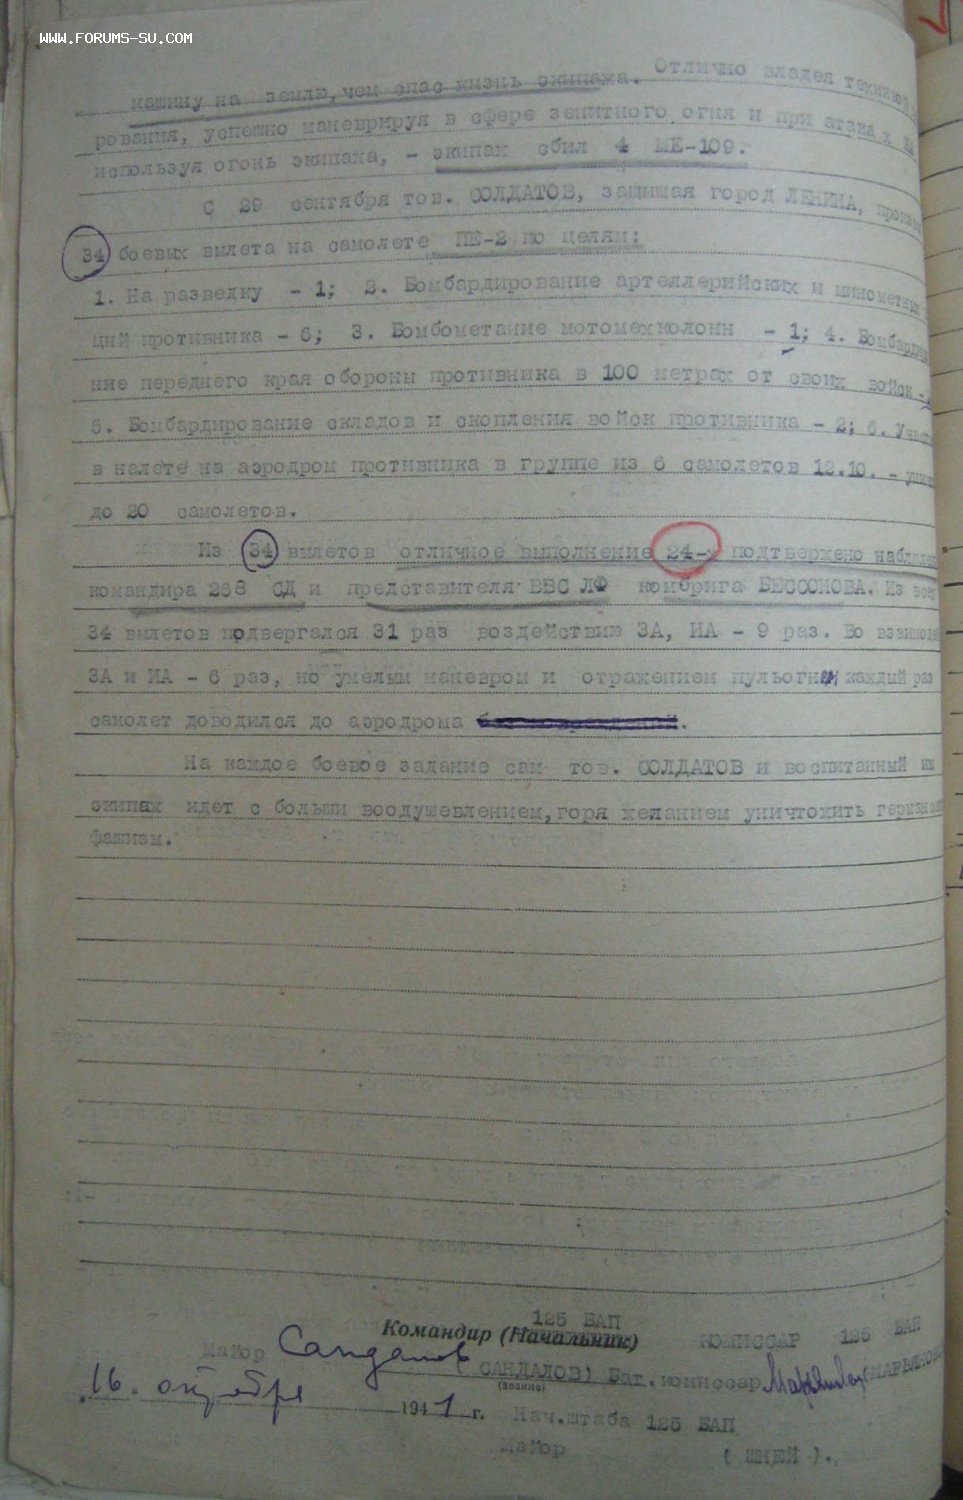 WWW.FORUMS-SU.COM
машину на землю, чем спас жизнь экипажа. Отлично владея техникой
рования, успешно маневрируя в сфере зенитного огня и при атаках ИА
используя огонь экипажа, - экипаж сбил 4 МЕ-109.
С 29 сентября тов. СОЛДАТОВ, защищая город ЛЕНИНА, произв
34 боевых вылета на самолете ПЕ-2 по целям:
1. На разведку - 1; 2. Бомбардирование артеллерийских и минометных
ций противника - 6; 3. Бомбометание мотомехколонн - 1; 4. Бомбардиро
ние переднего края обороны противника в 100 метрах от своих войск -
5. Бомбардирование складов и скопления войск противника - 2; 6. Участ
в налете на аэродром противника в группе из 6 самолетов 12.10. - унич
до 20 самолетов.
Из 34 вылетов отличное выполнение 24-х подтвержено наблюден
командира 268 СД и представителя ВВС ЛФ комбрига БЕССОНОВА. Из всех
34 вылетов подвергался 31 раз воздействию ЗА, ИА - 9 раз. Во взаимодей
ЗА и ИА - 6 раз, но умелым маневром и отражением пульогнем каждый раз
самолет доводился до аэродрома .
На каждое боевое задание сам тов. СОЛДАТОВ и воспитанный им
экипаж идет с больши воодушевлением, горя желанием уничтожить германск
фашизм.
125 БАП
Командир (Начальник) КОМИССАР 125 БАП
майор Сандалов (САНДАЛОВ) Бат. комиссар (МАРЬЯНОВ
16. октября 1941 г. Нач.штаба 125 БАП
майор ( ШНЕЙ ).